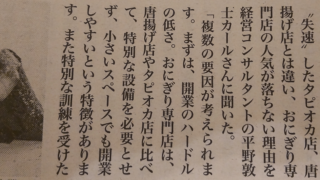 〝失速〟したタピオカ店、唐
揚げ店とは違い、おにぎり専
門店の人気が落ちない理由を
経営コンサルタントの平野敦
士カールさんに聞いた。
「複数の要因が考えられま
す。まずは、開業のハードル
の低さ。おにぎり専門店は、
唐揚げ店やタピオカ店に比べ
て、特別な設備を必要とせ
ず、小さいスペースでも開業
しやすいという特徴がありま
す。また特別な訓練を受けた